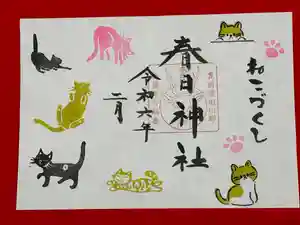 ねこづくし
春日神社
令和六年
二月